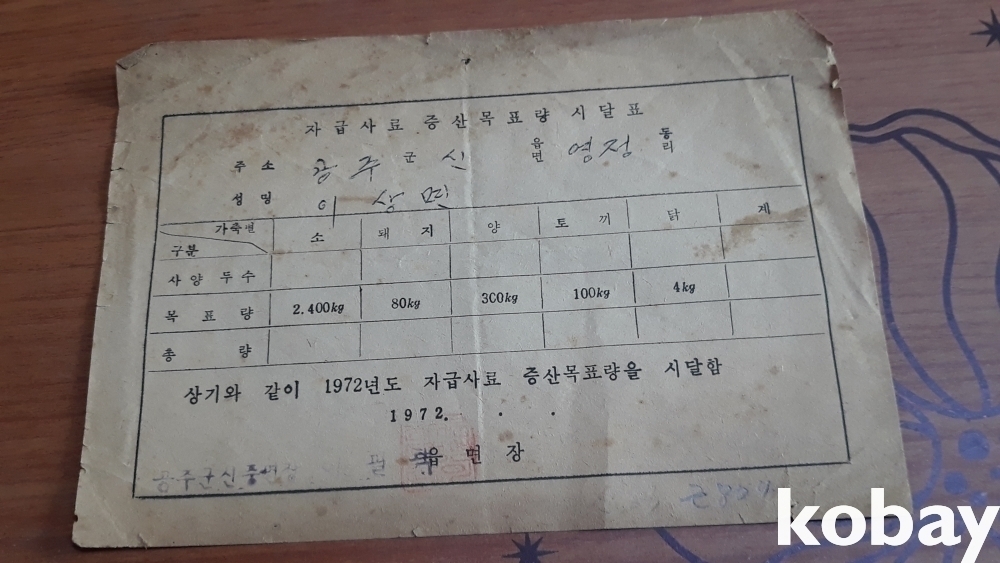 자급사료 증산목표량 시달표
주소 공주군 신 읍면 영정 동리
성명 이상
가축별 구분 소 돼지 양 토끼 닭 계
사양두수
목표량 2.400kg 80kg 300kg 100kg 4kg
총량
상기와 같이 1972년도 자급사료 증산목표량을 시달함
1972. . .
읍면장
공주군신풍면장
kobay